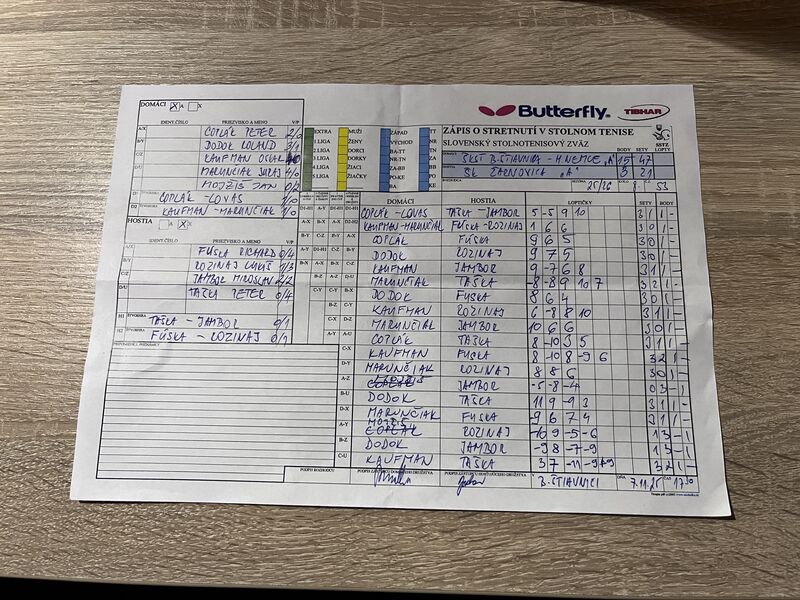 DOMÁCI X A X
Butterfly TIBHAR
IDENT.ČÍSLO PRIEZVISKO A MENO V/P
ZÁPIS O STRETNUTÍ V STOLNOM TENISE
SLOVENSKÝ STOLNOTENISOVÝ ZVÄZ
SSTZ
BODY SETY LOPTY
A/X COPLÁK PETER 2/0
B/Y DODOK ROLAND 3/1
C/Z KAUFMAN OSKAR
D/U MARUNČIAK JURAJ 4/0
MOJŽIŠ JAN 0/2
D1 ŠTVORHRA COPLÁK - LOVAS 1/0
D2 KAUFMAN - MARUNČIAK 1/0
EXTRA MUŽI ZÁPAD TT
1 LIGA ŽENY VÝCHOD NR
2 LIGA DORCI BA-TT TN
3 LIGA DORKY NR-TN ZA
4 LIGA ŽIACI ZA-BB BB
5 LIGA ŽIAČKY PO-KE PO
BA KE
ŠKST B. ŠTIAVNICA - H.NEMCE "A" 15 47
ŠK ŽARNOVICA "A" 3 21
SEZÓNA 25/26 8. 53
HOSTIA A X
IDENT.ČÍSLO PRIEZVISKO A MENO V/P
A/X FÚSKA RICHARD 0/4
B/Y ROZINAJ LUKÁŠ 1/3
C/Z JAMBOR MIROSLAV 2/2
D/U TAŠKA PETER 0/4
H1 ŠTVORHRA TAŠKA - JAMBOR 0/1
H2 ŠTVORHRA FÚSKA - ROZINAJ 0/1
DOMÁCI HOSTIA LOPTIČKY SETY BODY
COPLÁK - LOVAS TAŠKA - JAMBOR 5 -5 9 10 3 1 1 -
KAUFMAN-MARUNČIAK FÚSKA-ROZINAJ 1 6 6 3 0 1 -
COPLÁK FÚSKA 9 6 5 3 0 1 -
DODOK ROZINAJ 9 7 5 3 0 1 -
KAUFMAN JAMBOR 9 -7 6 8 3 1 1 -
MARUNČIAK TAŠKA -8 -8 9 10 7 3 2 1 -
DODOK FÚSKA 8 6 4 3 0 1 -
KAUFMAN ROZINAJ 6 -8 8 10 3 1 1 -
MARUNČIAK JAMBOR 10 6 6 3 0 1 -
COPLÁK TAŠKA 8 -10 3 5 3 1 1 -
KAUFMAN FÚSKA 8 -10 8 -9 6 3 2 1 -
MARUNČIAK ROZINAJ 8 8 6 3 0 1 -
JAMBOR -5 -8 -4 0 3 - 1
DODOK TAŠKA 11 9 -9 3 3 1 1 -
MARUNČIAK FÚSKA -9 6 7 4 3 1 1 -
MOJŽIŠ ROZINAJ -10 9 -5 -6 1 3 - 1
DODOK JAMBOR -9 8 -7 -9 1 3 - 1
KAUFMAN TAŠKA 3 7 -11 -9 3 2 1 -
PRIPOMIENKY, POZNÁMKY
PODPIS ROZHODCU PODPIS ZÁSTUPCU DOMÁCEHO DRUŽSTVA PODPIS ZÁSTUPCU HOSŤUJÚCEHO DRUŽSTVA
B. ŠTIAVNICI DŇA 7.11.25 ČAS 17:30